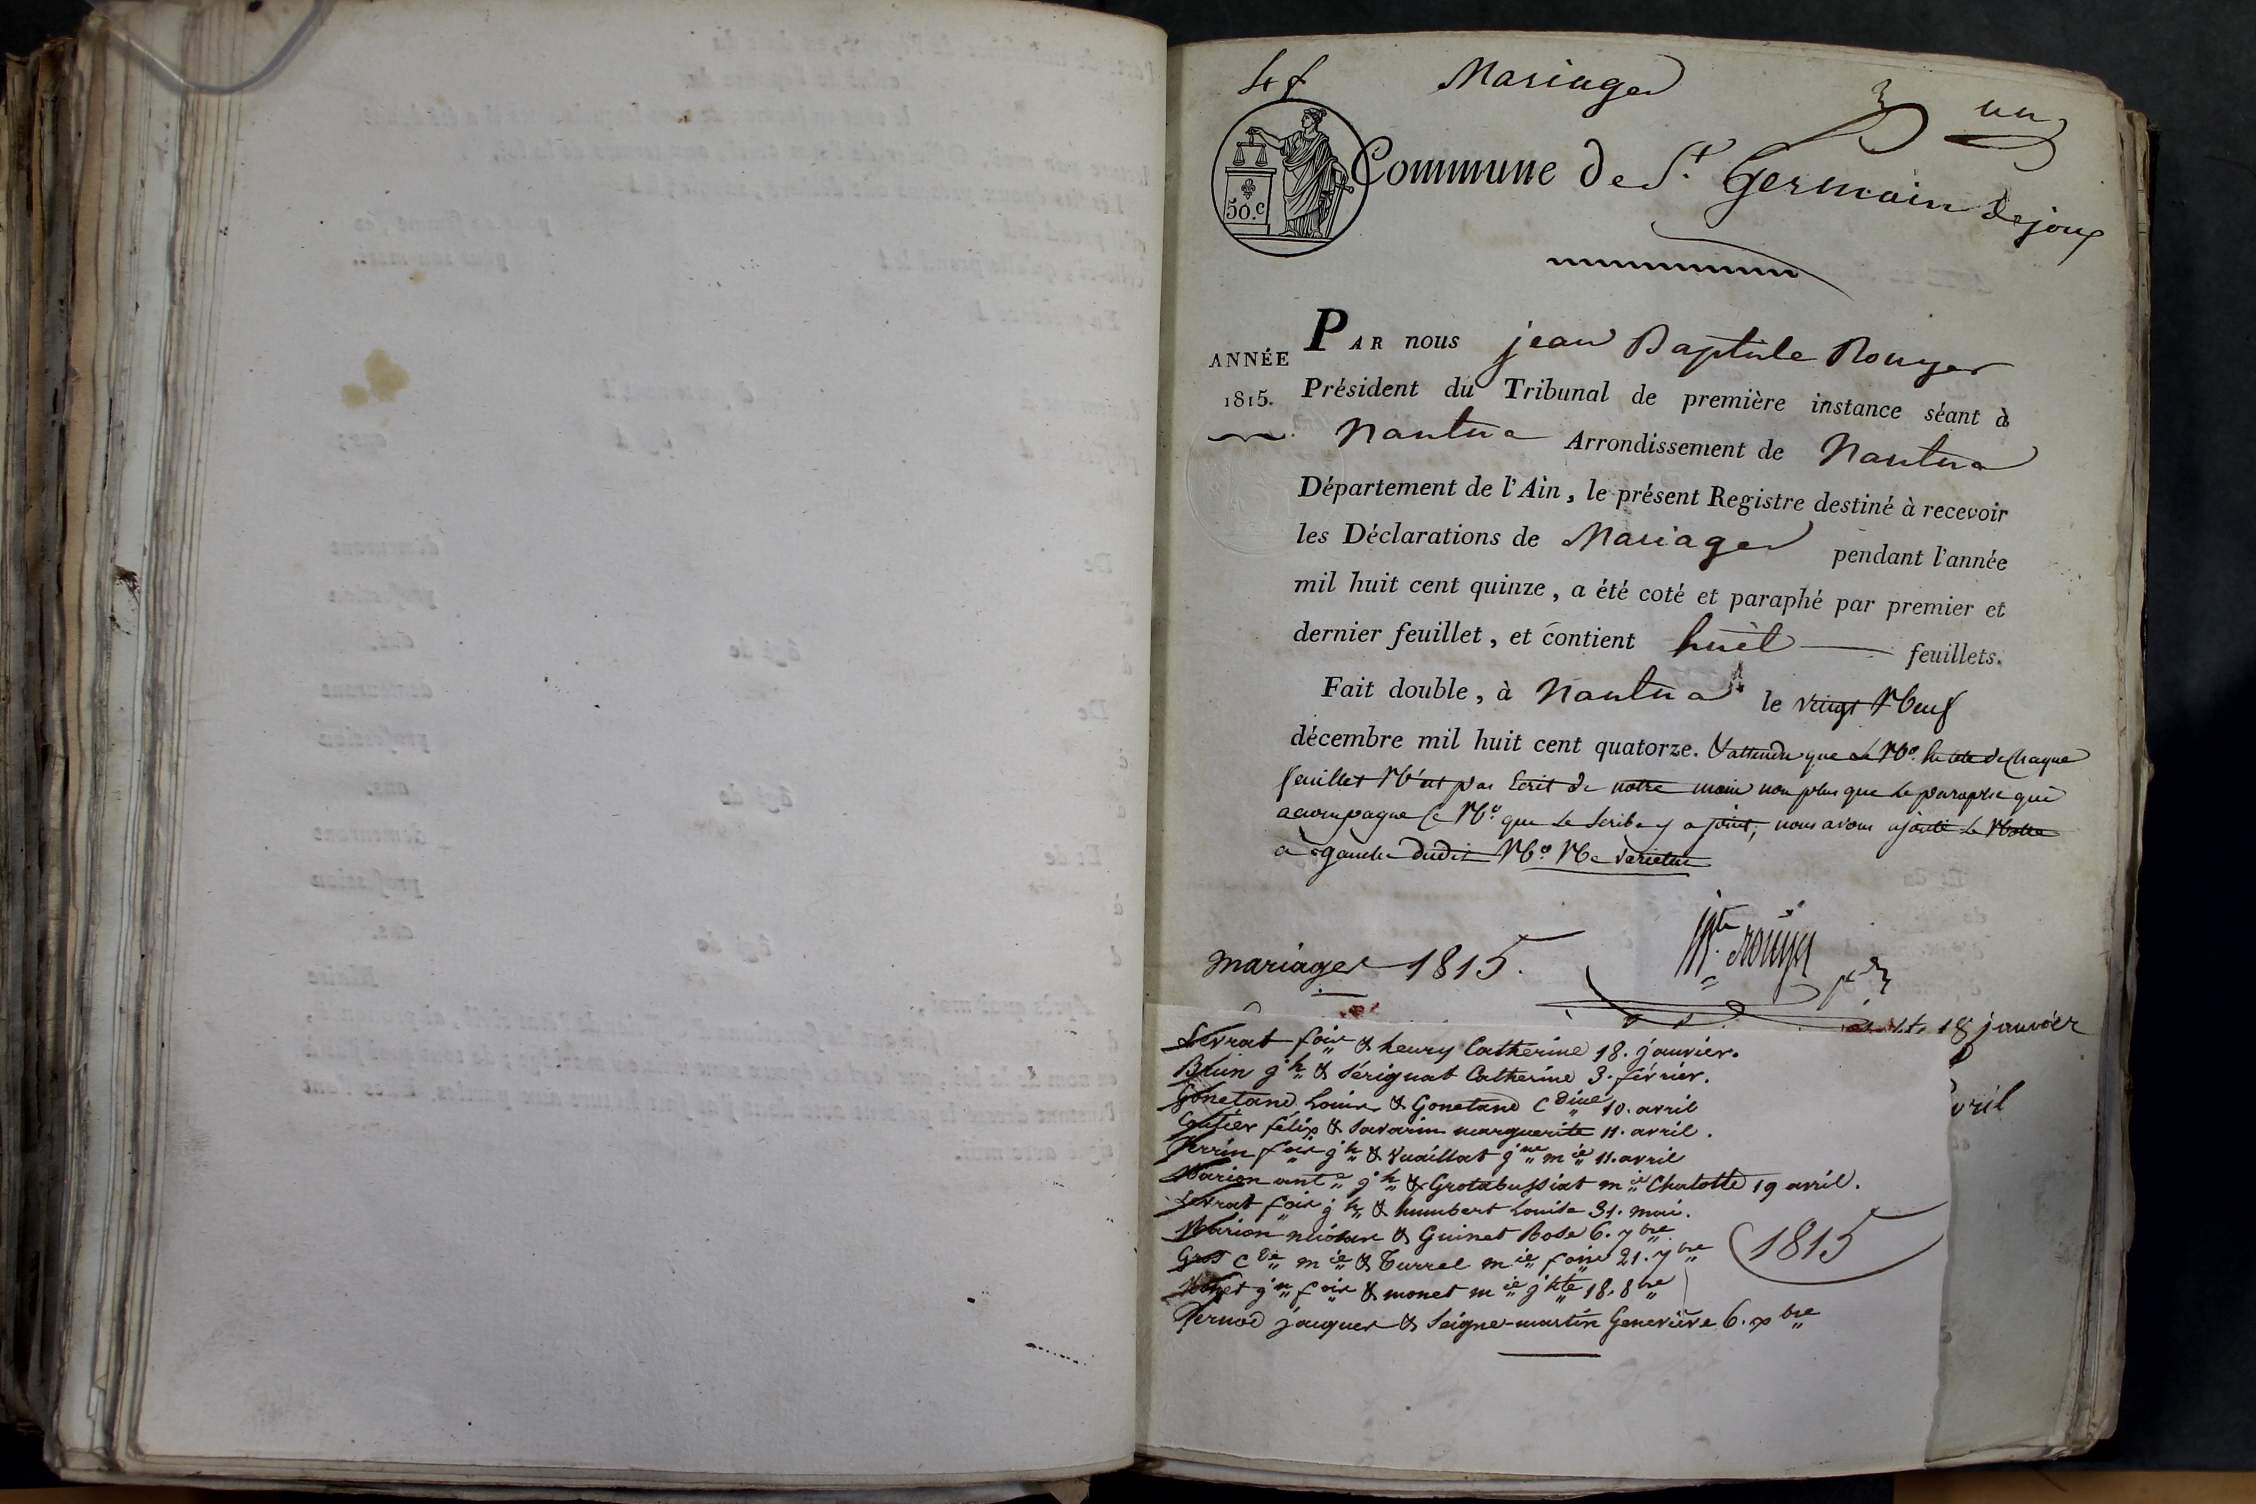 4 f Mariages un
50.c
Commune de St. Germain de joux
ANNÉE
1815.
PAR nous jean Baptiste Rouyer
Président du Tribunal de première instance séant à
Nantua Arrondissement de Nantua
Département de l'Ain, le présent Registre destiné à recevoir
les Déclarations de Mariages pendant l'année
mil huit cent quinze, a été coté et paraphé par premier et
dernier feuillet, et contient huit feuillets.
Fait double, à Nantua le vingt Neuf
décembre mil huit cent quatorze. Et attendu que Le No. de Chaque
feuillet N'est pas Ecrit de notre main non plus que Le paraphe qui
accompagne Ce No. que Le Scribe y a joint, nous avons ajouté Le Notre
a gauche dudit No. Ne varietur
Bte. rouyer pdt
mariages 1815.
18 janvier
Levrat fois & henry Catherine 18. janvier.
Brun jh & Sérignat Catherine 3. février.
Gonetand Louis & Gonetand Cdine 10. avril
félix & Savarin marguerite 11. avril.
Perrin fois jh & Vuaillat jne mie 11. avril
Marion ante jh & Grotabussiat mie Chalotte 19 avril.
Levrat fois jh & humbert Louise 31. mai.
Marion & Guinet Rose 6. 7bre
Gros Cde mie & Turrel mie foise 21. 7bre
Monet jn fois & monet mie jhte 18. 8bre
Pernod jacques & Seigne-martin Geneviève 6. Xbre
1815
vril